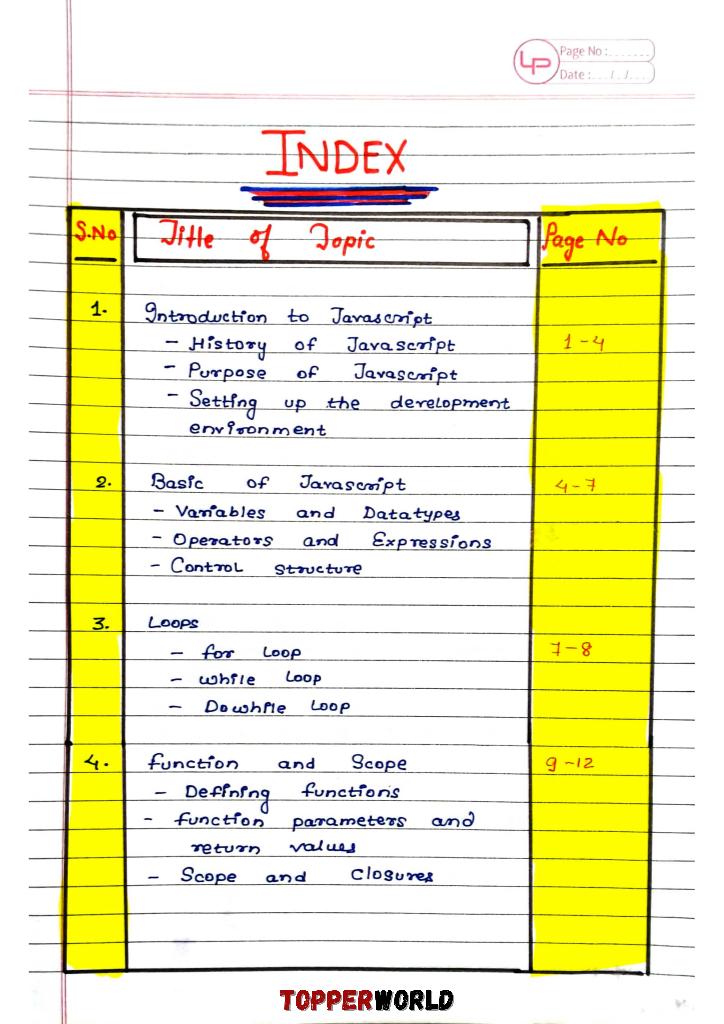 LP
Page No :.......
Date : ... / . / ....
INDEX
S.No Title of Topic Page No
1. Introduction to Javascript
- History of Javascript 1-4
- Purpose of Javascript
- Setting up the development
environment
2. Basic of Javascript 4-7
- Variables and Datatypes
- Operators and Expressions
- Control structure
3. Loops
- for Loop 7-8
- while Loop
- Dowhile Loop
4. function and Scope 9-12
- Defining functions
- function parameters and
return values
- Scope and Closures
TOPPERWORLD